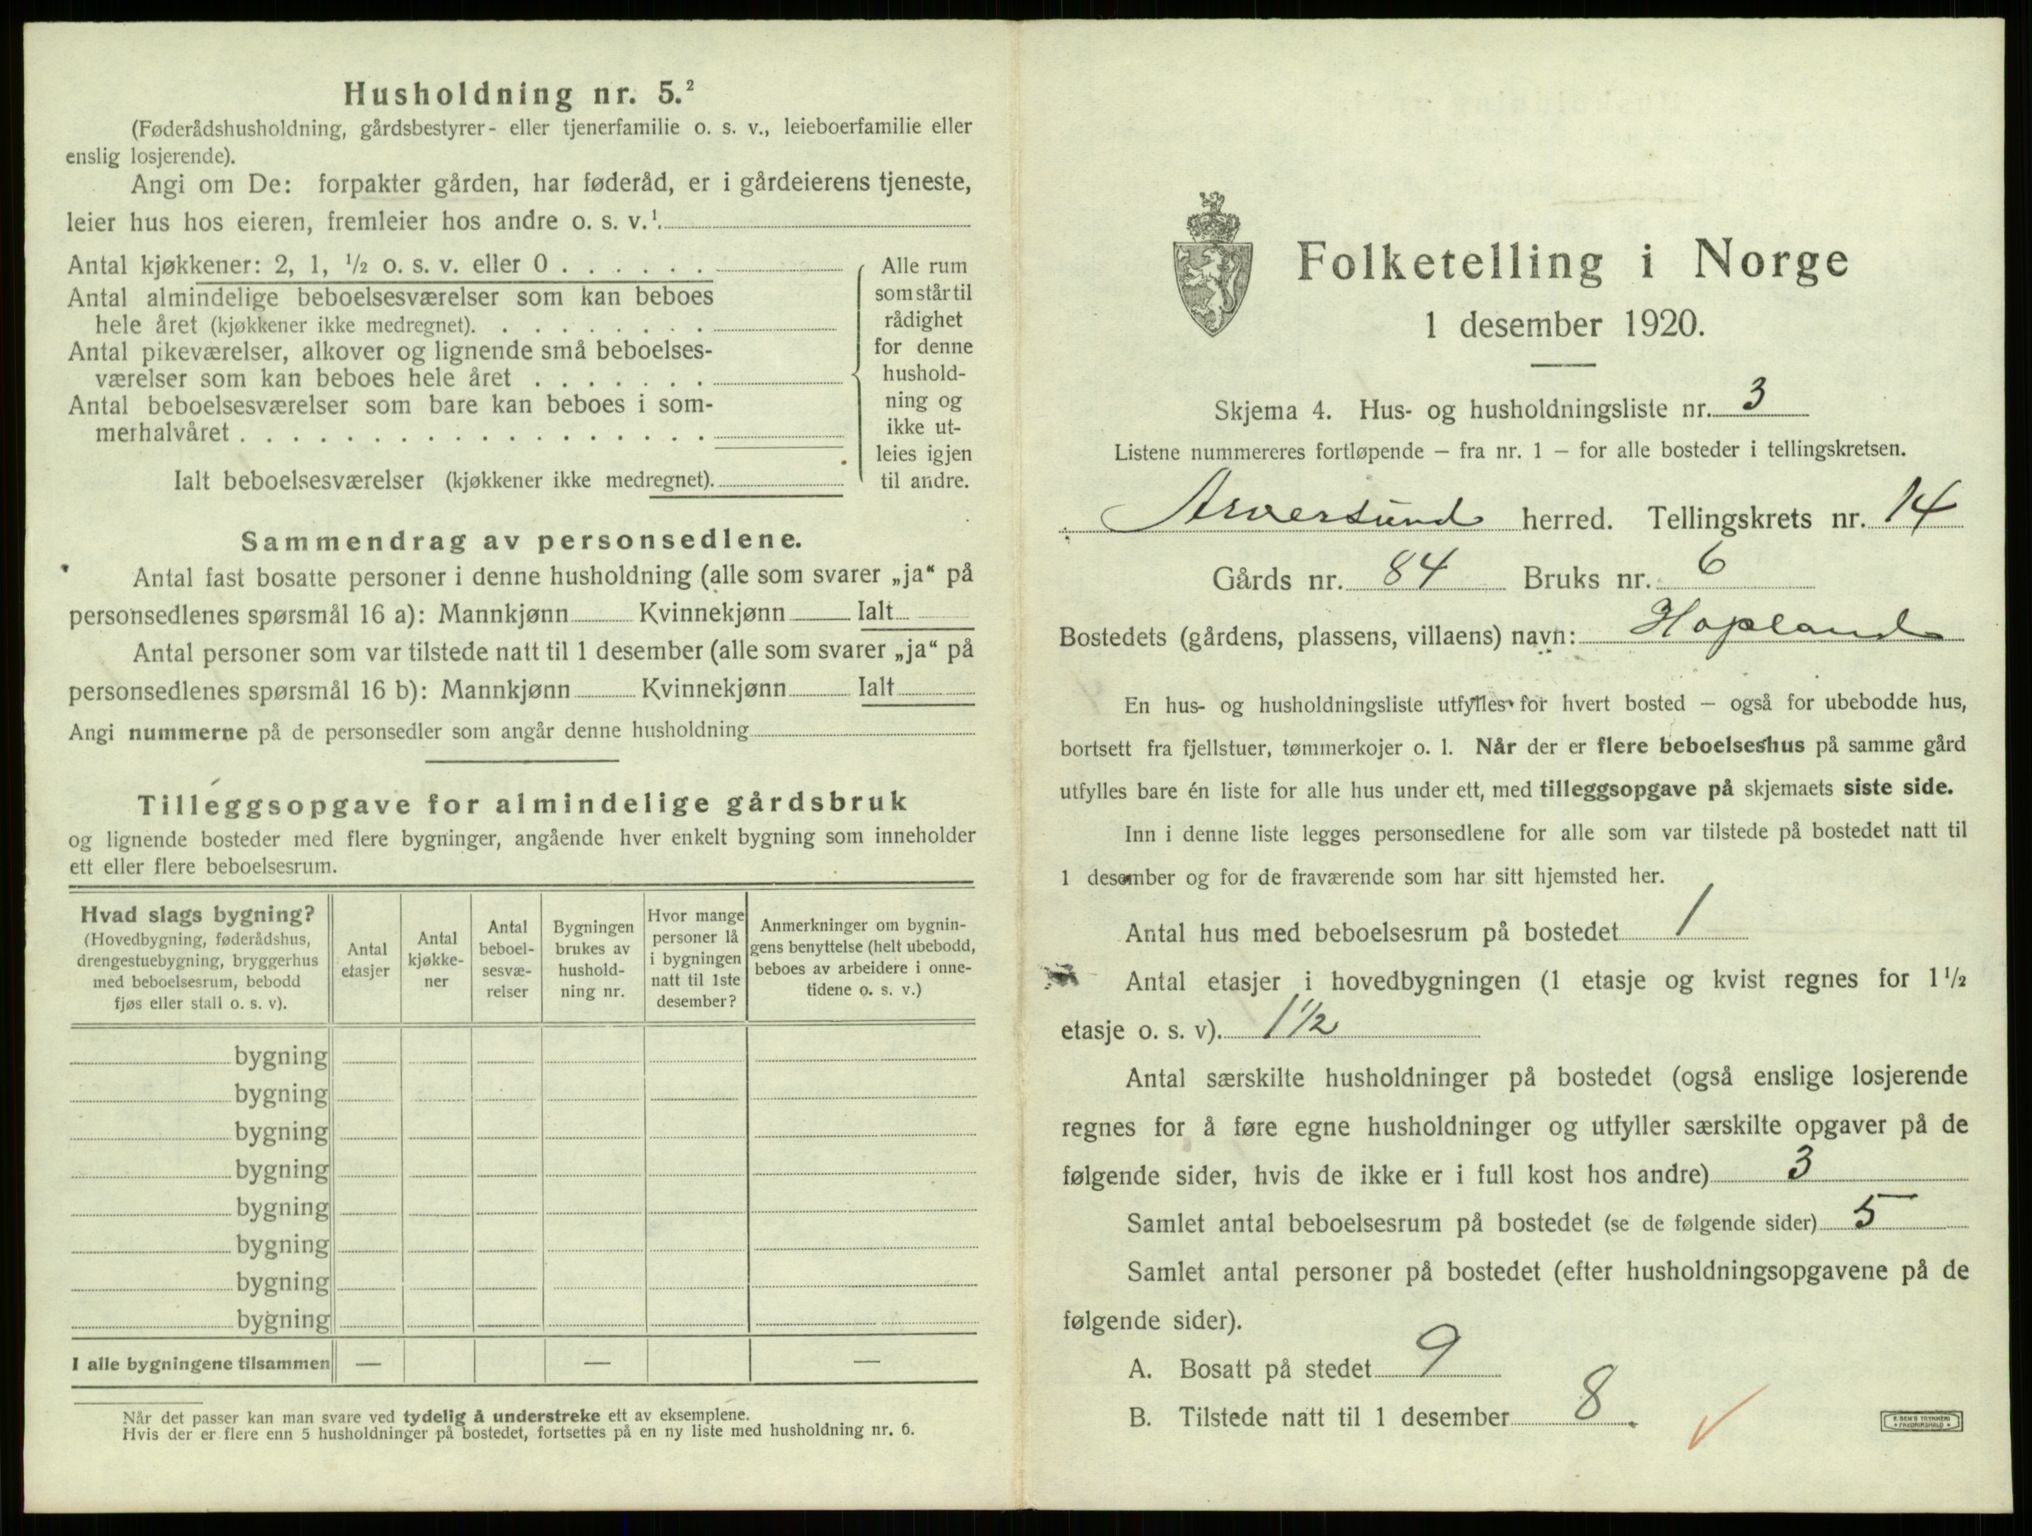 Husholdning nr. 5.²
(Føderådshusholdning, gårdsbestyrer- eller tjenerfamilie o. s. v., leieboerfamilie eller
enslig losjerende).
Angi om De: forpakter gården, har føderåd, er i gårdeierens tjeneste,
leier hus hos eieren, fremleier hos andre o. s. v.¹.
Antal kjøkkener: 2, 1, ½ o. s. v. eller 0 . . . . . .
Antal almindelige beboelsesværelser som kan beboes
hele året (kjøkkener ikke medregnet). . . . . . . . .
Antal pikeværelser, alkover og lignende små beboelses-
værelser som kan beboes hele året . . . . . . .
Antal beboelsesværelser som bare kan beboes i som-
merhalvåret . . . . . . . . . . . . . . . . . .
Ialt beboelsesværelser (kjøkkener ikke medregnet).
Alle rum
som står til
rådighet
for denne
hushold-
ning og
ikke ut-
leies igjen
til andre.
Sammendrag av personsedlene.
Antal fast bosatte personer i denne husholdning (alle som svarer „ja“ på
personsedlenes spørsmål 16 a): Mannkjønn Kvinnekjønn Ialt
Antal personer som var tilstede natt til 1 desember (alle som svarer „ja“ på
personsedlenes spørsmål 16 b): Mannkjønn Kvinnekjønn Ialt
Angi nummerne på de personsedler som angår denne husholdning
Tilleggsopgave for almindelige gårdsbruk
og lignende bosteder med flere bygninger, angående hver enkelt bygning som inneholder
ett eller flere beboelsesrum.
Hvad slags bygning?
(Hovedbygning, føderådshus,
drengestuebygning, bryggerhus
med beboelsesrum, bebodd
fjøs eller stall o. s. v).
Antal
etasjer
Antal
kjøkke-
ner
Antal
beboel-
sesvæ-
relser
Bygningen
brukes av
hushold-
ning nr.
Hvor mange
personer lå
i bygningen
natt til 1ste
desember?
Anmerkninger om bygnin-
gens benyttelse (helt ubebodd,
beboes av arbeidere i onne-
tidene o. s. v.)
bygning
bygning
bygning
bygning
bygning
bygning
bygning
bygning
I alle bygningene tilsammen — — —
Når det passer kan man svare ved tydelig å understreke ett av eksemplene.
Hvis der er flere enn 5 husholdninger på bostedet, fortsettes på en ny liste med husholdning nr. 6.
Folketelling i Norge
1 desember 1920.
Skjema 4. Hus- og husholdningsliste nr. 3
Listene nummereres fortløpende – fra nr. 1 – for alle bosteder i tellingskretsen.
Alversund herred. Tellingskrets nr. 14
Gårds nr. 84 Bruks nr. 6
Bostedets (gårdens, plassens, villaens) navn: Hopland
En hus- og husholdningsliste utfylles for hvert bosted – også for ubebodde hus,
bortsett fra fjellstuer, tømmerkojer o. l. Når der er flere beboelseshus på samme gård
utfylles bare én liste for alle hus under ett, med tilleggsopgave på skjemaets siste side.
Inn i denne liste legges personsedlene for alle som var tilstede på bostedet natt til
1 desember og for de fraværende som har sitt hjemsted her.
Antal hus med beboelsesrum på bostedet 1
Antal etasjer i hovedbygningen (1 etasje og kvist regnes for 1½
etasje o. s. v). 1½
Antal særskilte husholdninger på bostedet (også enslige losjerende
regnes for å føre egne husholdninger og utfyller særskilte opgaver på de
følgende sider, hvis de ikke er i full kost hos andre) 3
Samlet antal beboelsesrum på bostedet (se de følgende sider) 5
Samlet antal personer på bostedet (efter husholdningsopgavene på de
følgende sider).
A. Bosatt på stedet 9
B. Tilstede natt til 1 desember 8